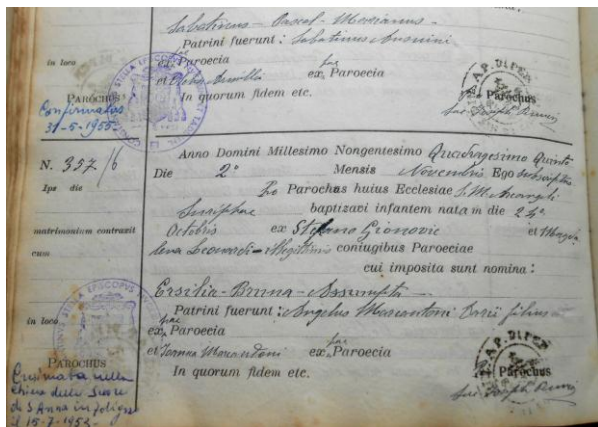 Sabatinus - Pascal - Marianus -
Patrini fuerunt: Sabatinus
in loco
ex Paroecia
et
ex Paroecia
PAROCHUS
In quorum fidem etc.
Parochus
Confirmatus
31-5-1955
N. 357/6
Anno Domini Millesimo Nongentesimo Quadragesimo Quinto
Die 2° Mensis Novembris Ego subscriptus
Ips die
Parochus huius Ecclesiae S. M. Arcangeli
baptizavi infantem nata m die 24a
matrimonium contraxit
Octobris ex Stefano Gionovic et Magda
cum
lena Leonardi - coniugibus Paroeciae
cui imposita sunt nomina:
Ersilia - Bruna - Assumpta -
Patrini fuerunt: Angelus Marcantoni Darii filius
in loco
ex Paroecia
et Joanna Marcantoni ex Paroecia
PAROCHUS
In quorum fidem etc.
Parochus
Cresimata nella
Chiesa delle Suore
di S Anna in Foligno
il 15-7-1952-